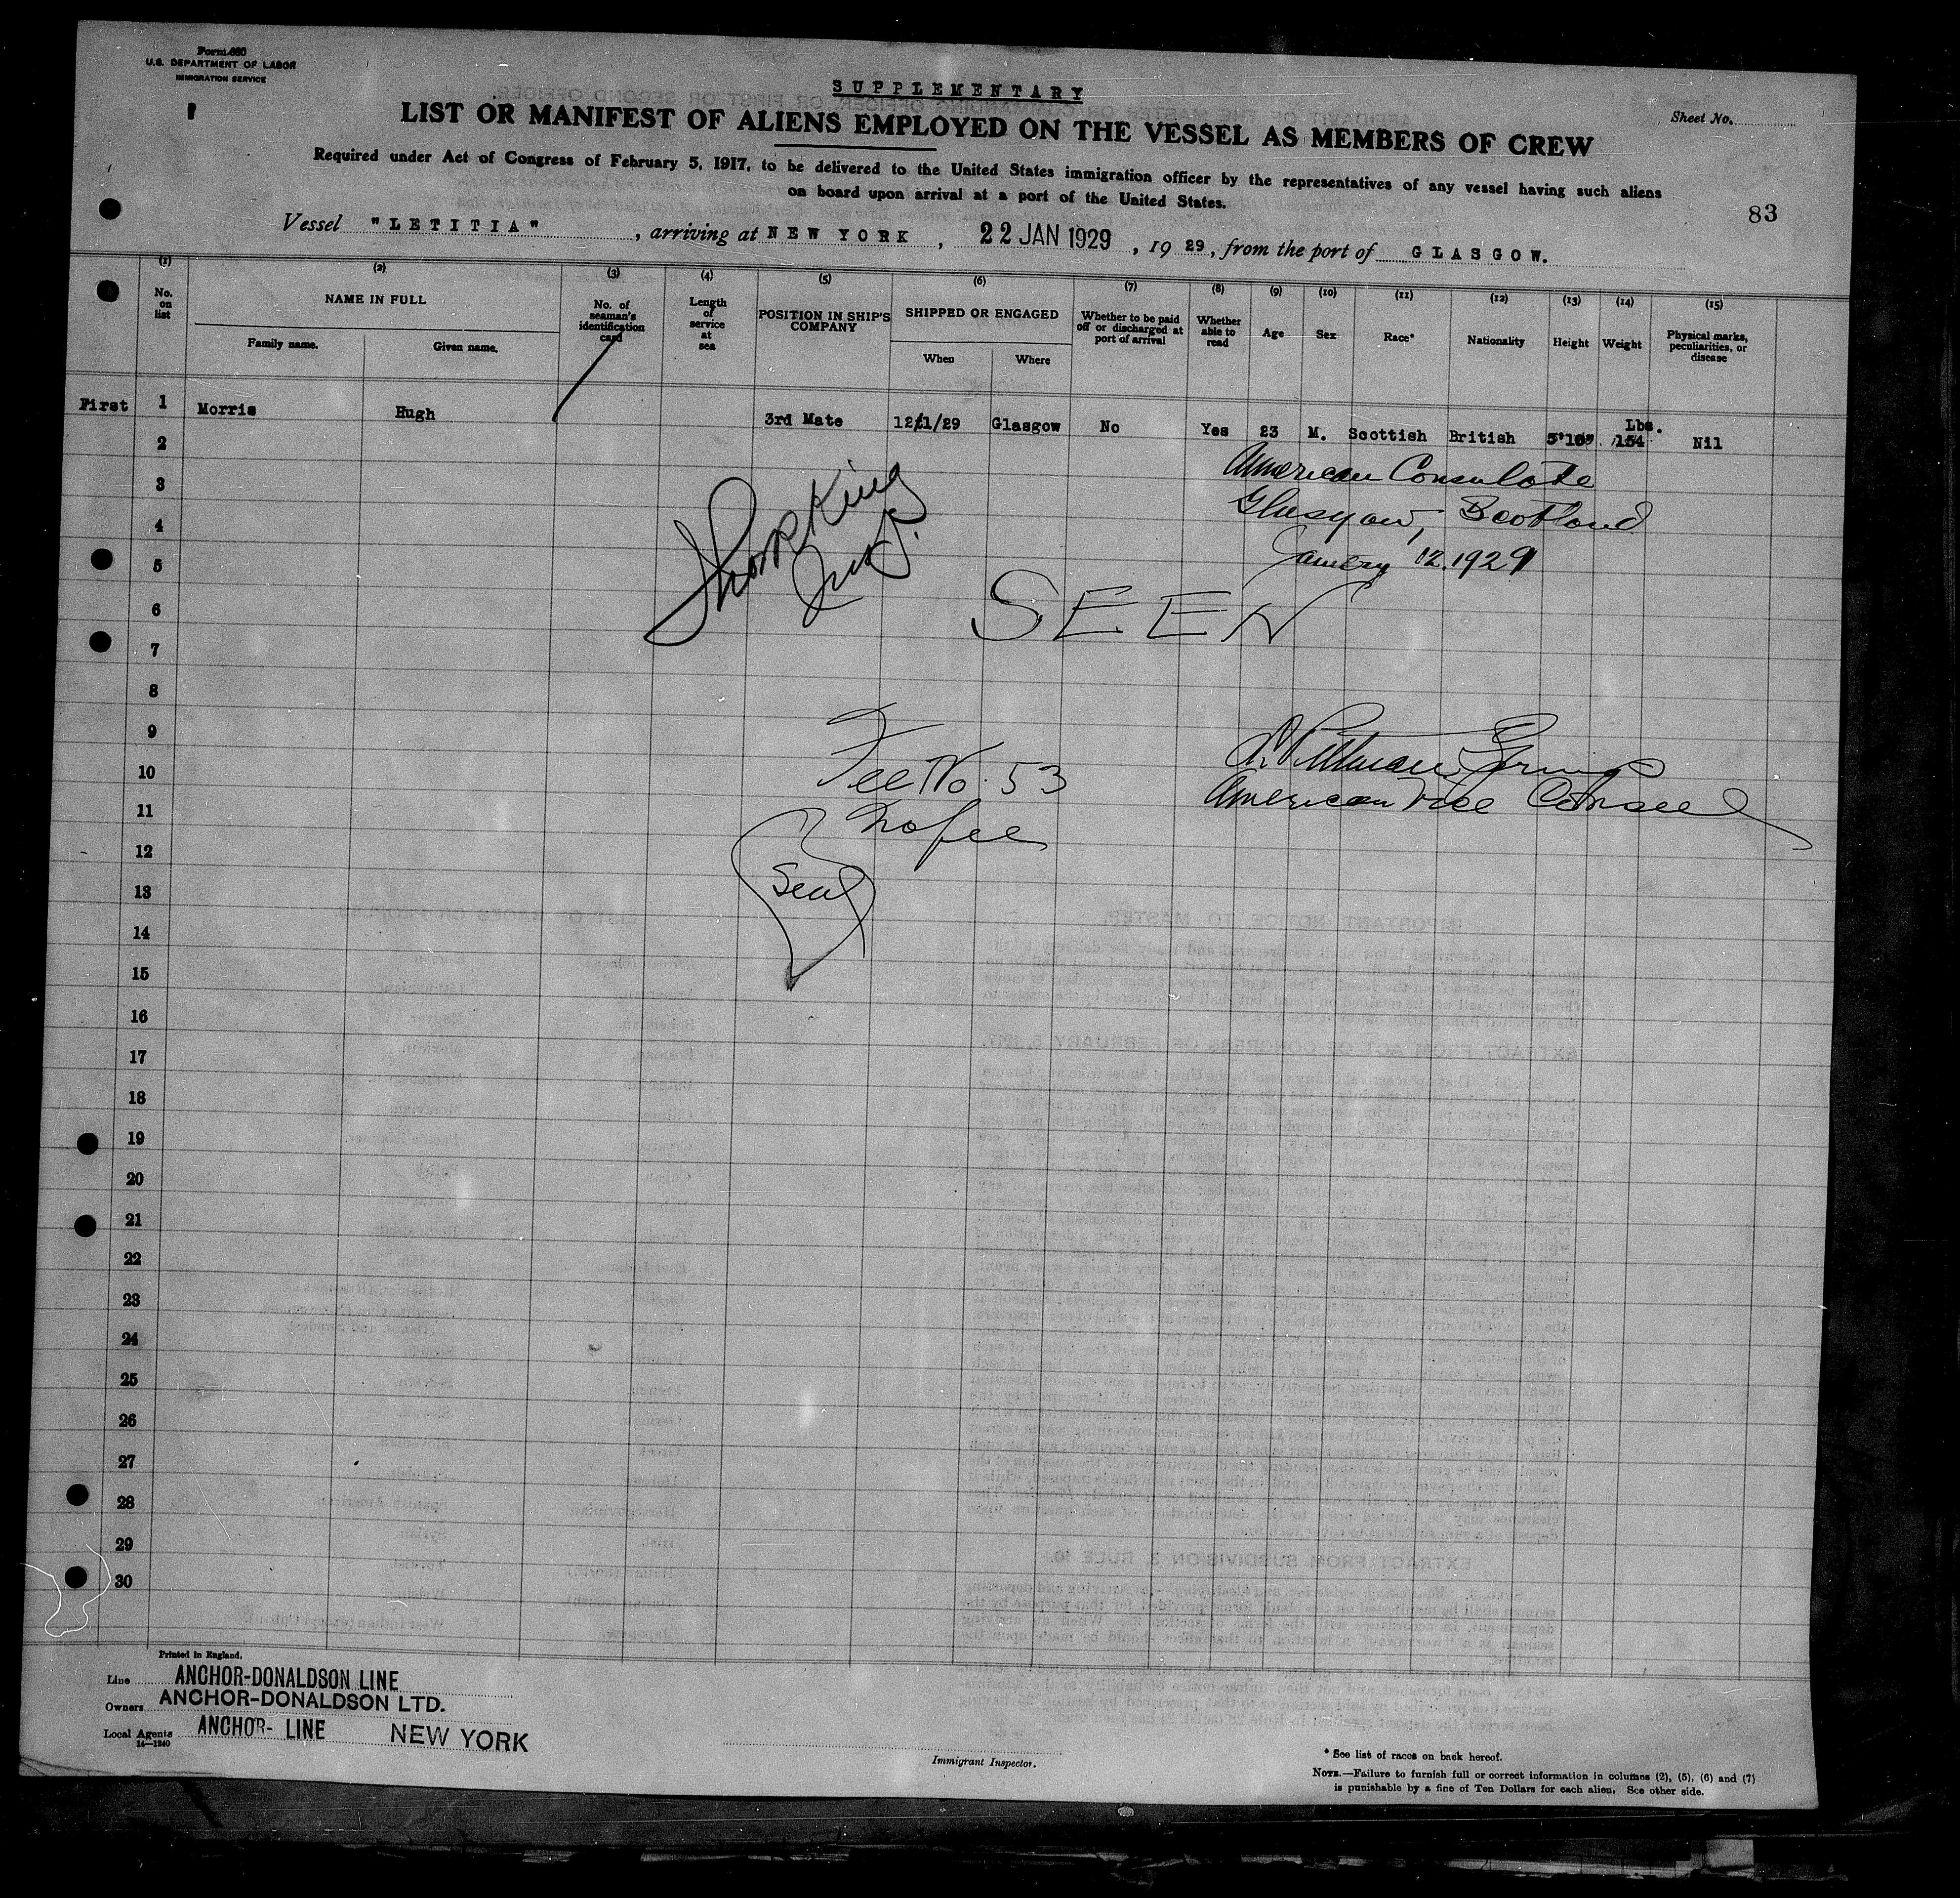 Form 680
U.S. DEPARTMENT OF LABOR
IMMIGRATION SERVICE
SUPPLEMENTARY
LIST OR MANIFEST OF ALIENS EMPLOYED ON THE VESSEL AS MEMBERS OF CREW
Sheet No.
Required under Act of Congress of February 5, 1917, to be delivered to the United States immigration officer by the representatives of any vessel having such aliens
on board upon arrival at a port of the United States.
83
Vessel "LETITIA", arriving at NEW YORK, 22 JAN 1929, 1929, from the port of GLASGOW.
(1) (2) (3) (4) (5) (6) (7) (8) (9) (10) (11) (12) (13) (14) (15)
No. on list
NAME IN FULL
Family name. Given name.
No. of seaman's identification card
Length of service at sea
POSITION IN SHIP'S COMPANY
SHIPPED OR ENGAGED
When Where
Whether to be paid off or discharged at port of arrival
Whether able to read
Age
Sex
Race*
Nationality
Height
Weight
Physical marks, peculiarities, or disease
First 1 Morris Hugh 3rd Mate 12/1/29 Glasgow No Yes 23 M. Scottish British 5'10" Lbs. 154 Nil
2
American Consulate
3
Glasgow, Scotland
4
January 12. 1929
5
SEEN
6
7
8
9
10
Fee No. 53
American Vice Consul
11
No fee
12
Seal
13
14
15
16
17
18
19
20
21
22
23
24
25
26
27
28
29
30
Printed in England.
Line ANCHOR-DONALDSON LINE
Owners ANCHOR-DONALDSON LTD.
Local Agents ANCHOR- LINE NEW YORK
14—1240
Immigrant Inspector.
* See list of races on back hereof.
NOTE.—Failure to furnish full or correct information in columns (2), (5), (6) and (7)
is punishable by a fine of Ten Dollars for each alien. See other side.